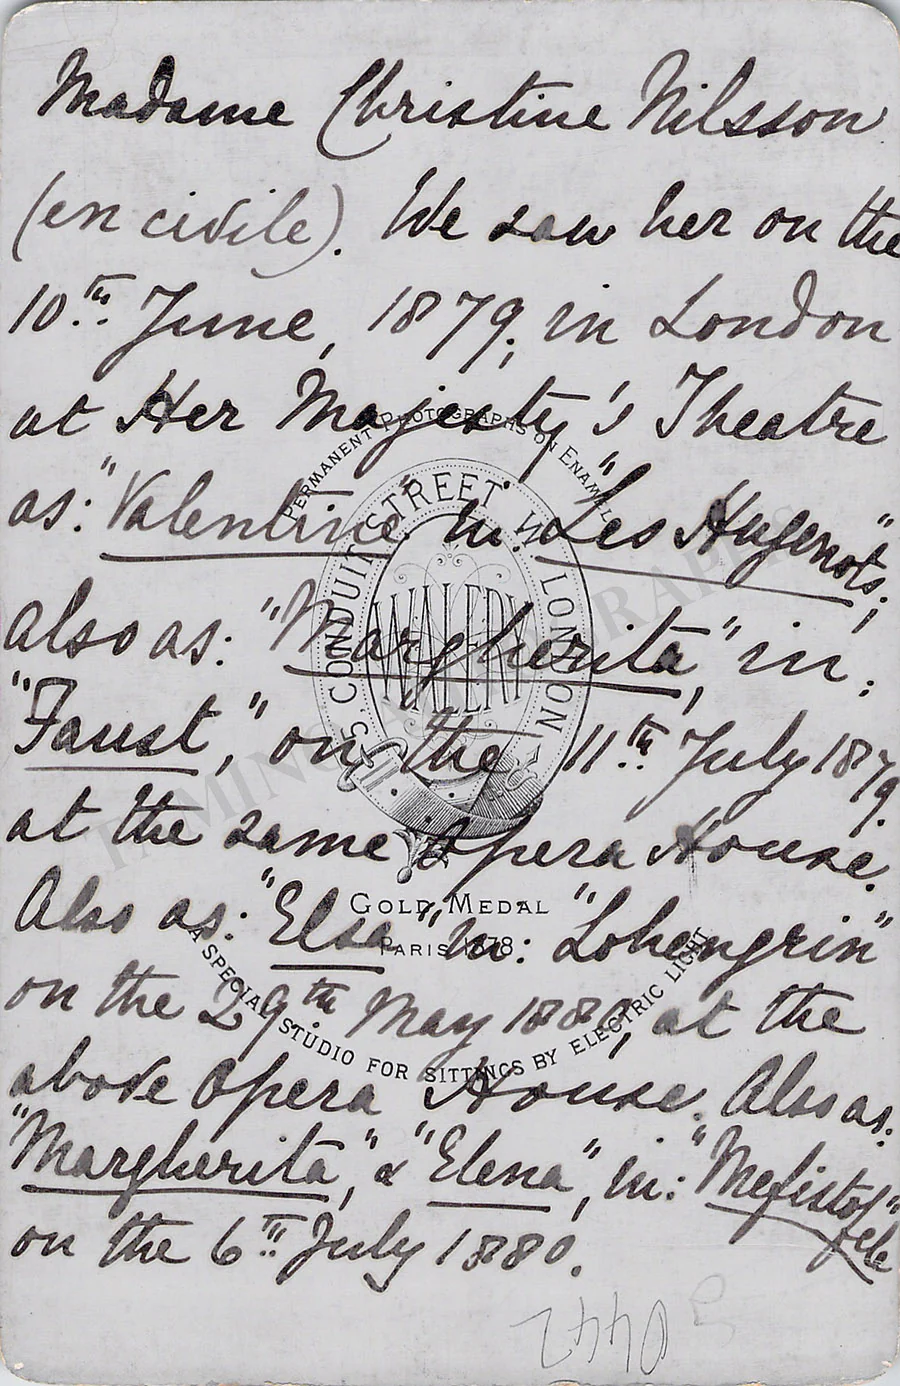 Madame Christine Nilsson
(en civile). We saw her on the
10th June, 1879, in London
at Her Majesty's Theatre
PERMANENT PHOTOGRAPHS ON ENAMEL
as: "Valentine" in: "Les Hugenots";
5. CONDUIT STREET W LONDON
WALERY
also as: "Margherita", in:
"Faust", on the 11th July 1879.
at the same Opera House.
GOLD MEDAL
Also as: "Elsa" in: "Lohengrin"
PARIS 1878
A SPECIAL STUDIO FOR SITTINGS BY ELECTRIC LIGHT
on the 29th May 1880, at the
above Opera House. Also as:
"Margherita", & "Elena", in: "Mefistofele"
on the 6th July 1880.